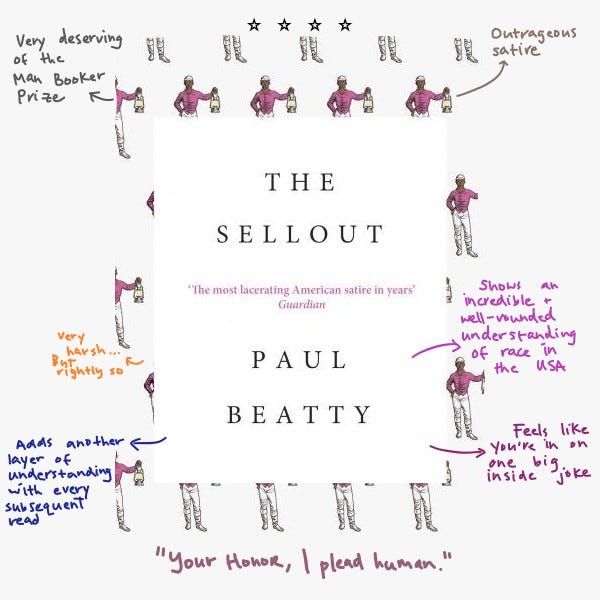 ☆ ☆ ☆ ☆
Very deserving
of the
Man Booker
Prize
Outrageous
satire
THE
SELLOUT
'The most lacerating American satire in years'
Guardian
PAUL
BEATTY
Shows an
incredible +
well-rounded
understanding
of race in
the USA
Very
harsh...
But
rightly so
Adds another
layer of
understanding
with every
subsequent
read
Feels like
you're in on
one big
inside joke
"Your Honor, I plead human."